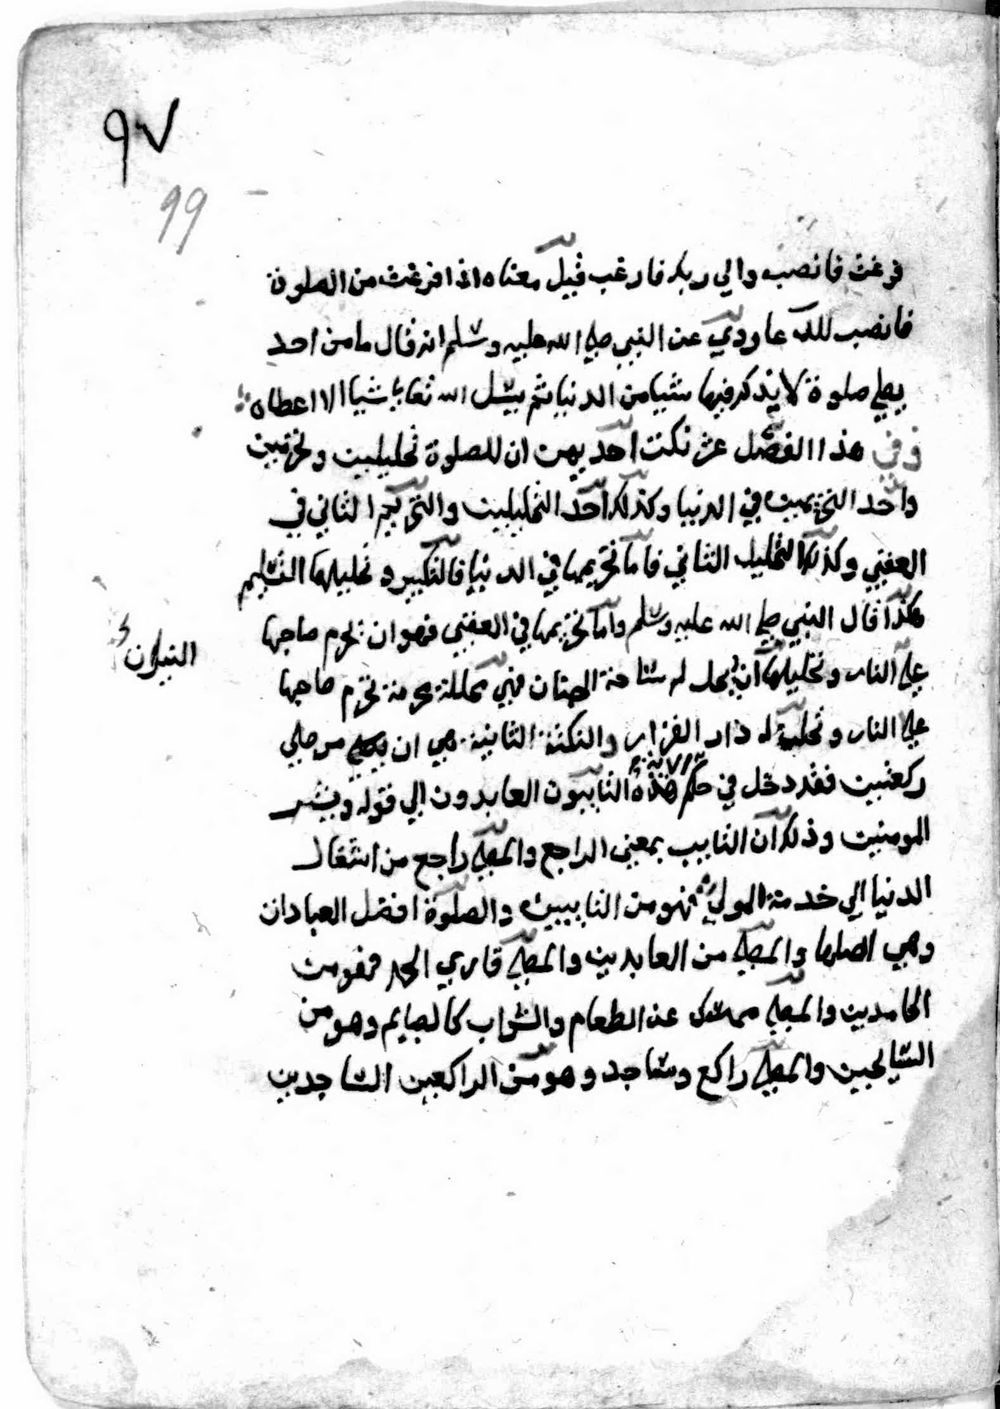 ٩٧
99
فرغت فانصب والي ربك فارغب قيل معناه اذا فرغت من الصلوة
فانصب للدعا وروي عن النبي صلي الله عليه وسلم انه قال ما من احد
يصلي صلوة لا يذكر فيها شيا من الدنيا ثم يسل الله تعالي شيا الا اعطاه
وفي هذا الفصل عشر نكت احديهن ان للصلوة تحليلين وتحرمين
واحد التحريمين في الدنيا وكذلك احد التحليلين والتحريم الثاني في
العقبي وكذلك التحليل الثاني فاما تحريمها في الدنيا فالتكبير وتحليلها التسليم
هكذا قال النبي صلي الله عليه وسلم واما تحريمها في العقبي فهو ان تحرم صاحبها
علي النار وتحليلها ان يحل له ساحة الجنان فهي محللة محرمة تحرم صاحبها
النيران
علي النار وتحليه دار القرار والنكتة الثانية هي ان من صلي
ركعتين فقد دخل في حكم هذه الاية التايبون العابدون الي قوله وبشر
المومنين وذلك ان التايب بمعني الراجع والمصلي راجع من اشغال
الدنيا الي خدمة المولي فهو من التايبين والصلوة افضل العبادات
وهي اصلها والمصلي من العابدين والمصلي قاري الحمد فهو من
الحامدين والمصلي ممسك عن الطعام والشراب كالصايم وهو من
السايحين والمصلي راكع وساجد وهو من الراكعين الساجدين